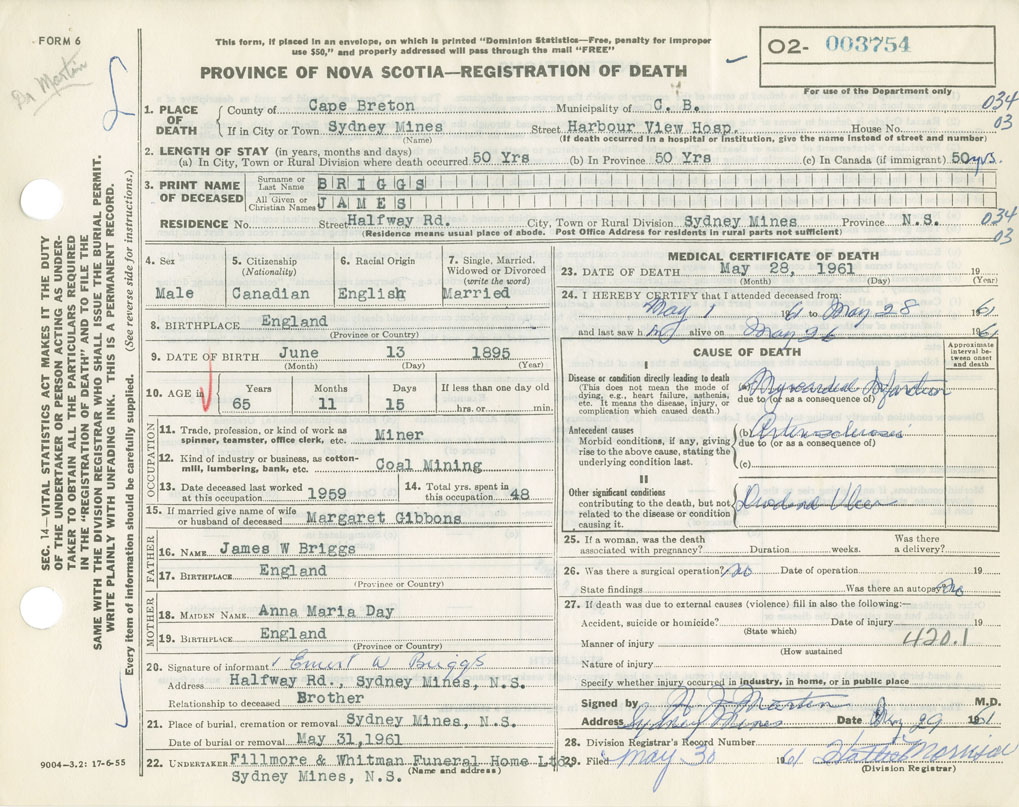 FORM 6
Dr Martin
This form, if placed in an envelope, on which is printed "Dominion Statistics—Free, penalty for improper
use $50," and properly addressed will pass through the mail "FREE"
PROVINCE OF NOVA SCOTIA—REGISTRATION OF DEATH
02- 003754
For use of the Department only
SEC. 14—VITAL STATISTICS ACT MAKES IT THE DUTY
OF THE UNDERTAKER OR PERSON ACTING AS UNDER-
TAKER TO OBTAIN ALL THE PARTICULARS REQUIRED
IN THE "REGISTRATION OF DEATH" AND TO FILE THE
SAME WITH THE DIVISION REGISTRAR WHO SHALL ISSUE THE BURIAL PERMIT.
WRITE PLAINLY WITH UNFADING INK. THIS IS A PERMANENT RECORD.
Every item of information should be carefully supplied. (See reverse side for instructions.)
1. PLACE OF DEATH County of Cape Breton Municipality of C. B. 034
If in City or Town Sydney Mines Street Harbour View Hosp. House No. 03
(Name) (If death occurred in a hospital or institution, give the name instead of street and number)
2. LENGTH OF STAY (in years, months and days)
(a) In City, Town or Rural Division where death occurred 50 Yrs (b) In Province 50 Yrs (c) In Canada (if immigrant) 50 yrs.
3. PRINT NAME OF DECEASED Surname or Last Name BRIGGS
All Given or Christian Names JAMES
RESIDENCE No. Street Halfway Rd. City, Town or Rural Division Sydney Mines Province N.S. 034
(Residence means usual place of abode. Post Office Address for residents in rural parts not sufficient) 03
4. Sex 5. Citizenship (Nationality) 6. Racial Origin 7. Single, Married, Widowed or Divorced (write the word)
Male Canadian English Married
8. BIRTHPLACE England
(Province or Country)
9. DATE OF BIRTH June 13 1895
(Month) (Day) (Year)
10. AGE in Years Months Days If less than one day old
65 11 15 hrs. or min.
OCCUPATION
11. Trade, profession, or kind of work as spinner, teamster, office clerk, etc. Miner
12. Kind of industry or business, as cotton-mill, lumbering, bank, etc. Coal Mining
13. Date deceased last worked at this occupation 1959 14. Total yrs. spent in this occupation 48
15. If married give name of wife or husband of deceased Margaret Gibbons
FATHER
16. NAME James W Briggs
17. BIRTHPLACE England
(Province or Country)
MOTHER
18. MAIDEN NAME Anna Maria Day
19. BIRTHPLACE England
(Province or Country)
20. Signature of informant Ernest W Briggs
Address Halfway Rd., Sydney Mines, N.S.
Relationship to deceased Brother
21. Place of burial, cremation or removal Sydney Mines, N.S.
Date of burial or removal May 31, 1961
22. UNDERTAKER Fillmore & Whitman Funeral Home Ltd.
(Name and address)
Sydney Mines, N.S.
9004—3.2: 17-6-55
MEDICAL CERTIFICATE OF DEATH
23. DATE OF DEATH May 28, 1961 19
(Month) (Day) (Year)
24. I HEREBY CERTIFY that I attended deceased from:
May 1 61 to May 28 1961
and last saw him alive on May 26 1961
CAUSE OF DEATH
Approximate interval between onset and death
I
Disease or condition directly leading to death
(This does not mean the mode of dying, e.g., heart failure, asthenia, etc. It means the disease, injury, or complication which caused death.)
(a) Myocardial Infarction
due to (or as a consequence of)
Antecedent causes
Morbid conditions, if any, giving rise to the above cause, stating the underlying condition last.
(b) Arteriosclerosis
due to (or as a consequence of)
(c)
II
Other significant conditions
contributing to the death, but not related to the disease or condition causing it.
Duodenal Ulcer
25. If a woman, was the death associated with pregnancy? Duration weeks. Was there a delivery?
26. Was there a surgical operation? No Date of operation 19
State findings Was there an autopsy? No
27. If death was due to external causes (violence) fill in also the following:—
Accident, suicide or homicide? Date of injury 19
(State which)
Manner of injury 420.1
(How sustained)
Nature of injury
Specify whether injury occurred in industry, in home, or in public place
Signed by Martin M.D.
Address Sydney Mines Date May 29 1961
28. Division Registrar's Record Number
29. Filed May 30 1961
(Division Registrar)